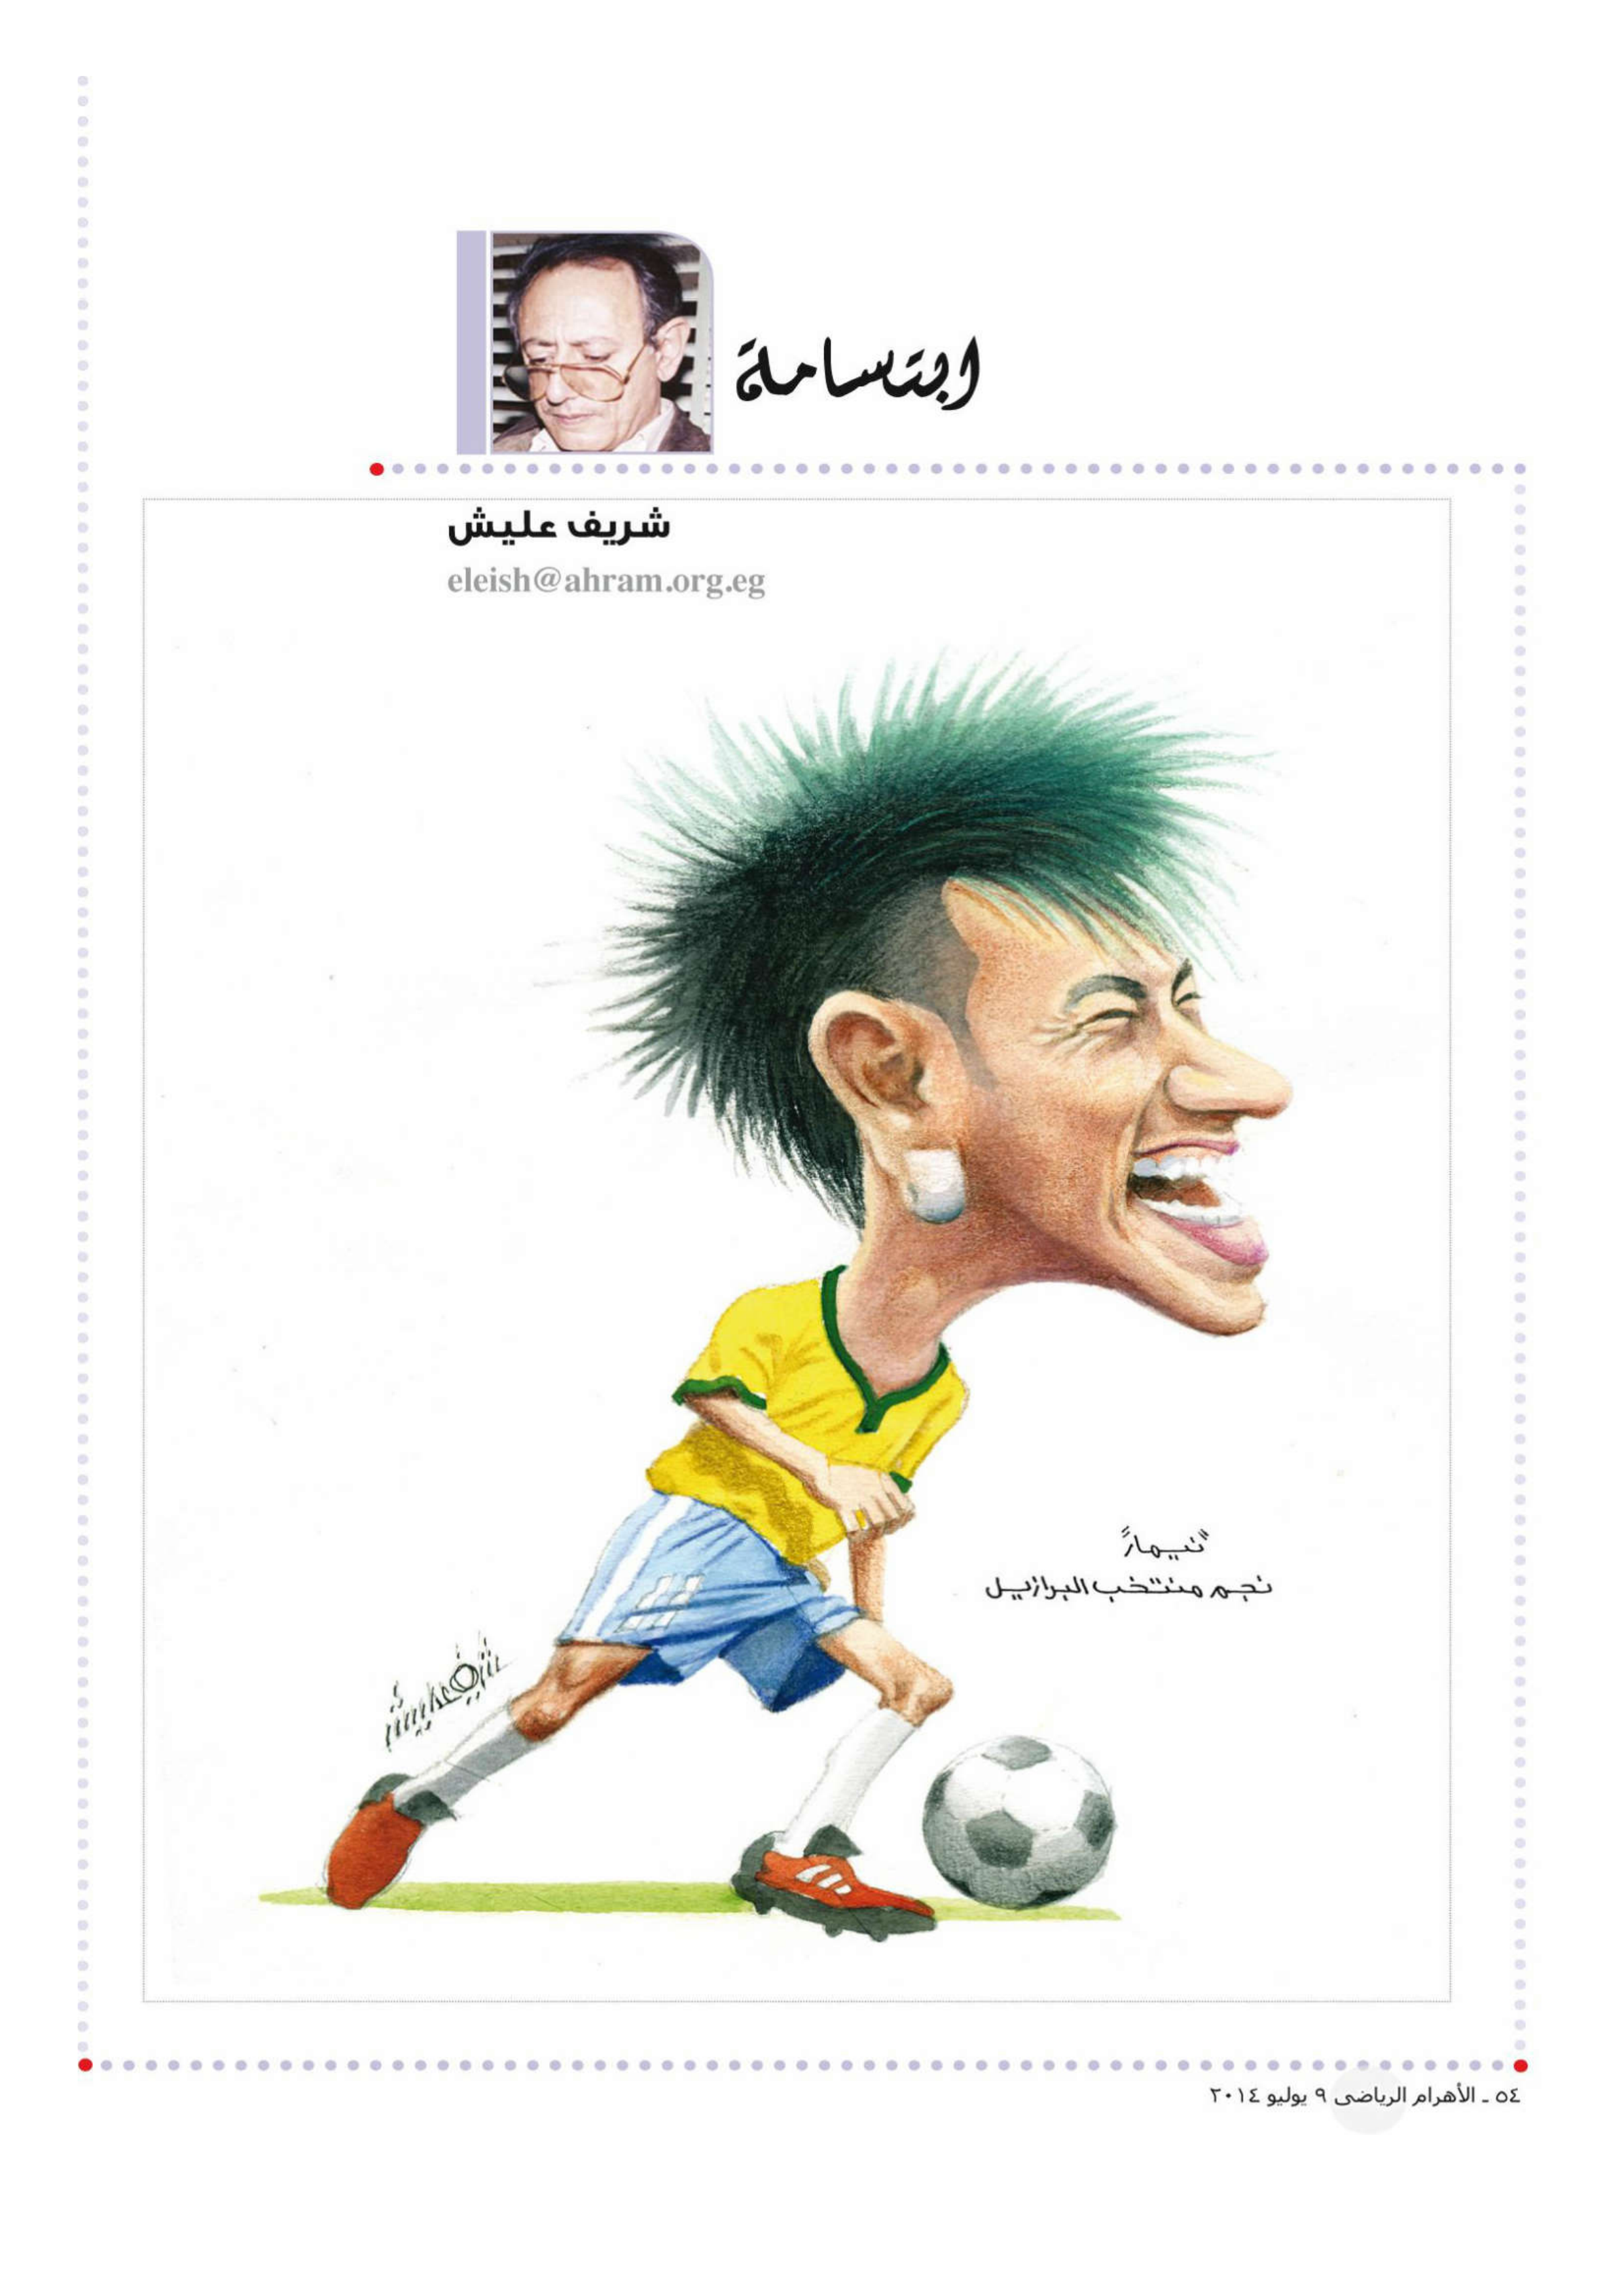 ابتسامة
شريف عليش
eleish@ahram.org.eg
"نيمار"
نجم منتخب البرازيل
شريف عليش
٥٤ ـ الأهرام الرياضى ٩ يوليو ٢٠١٤